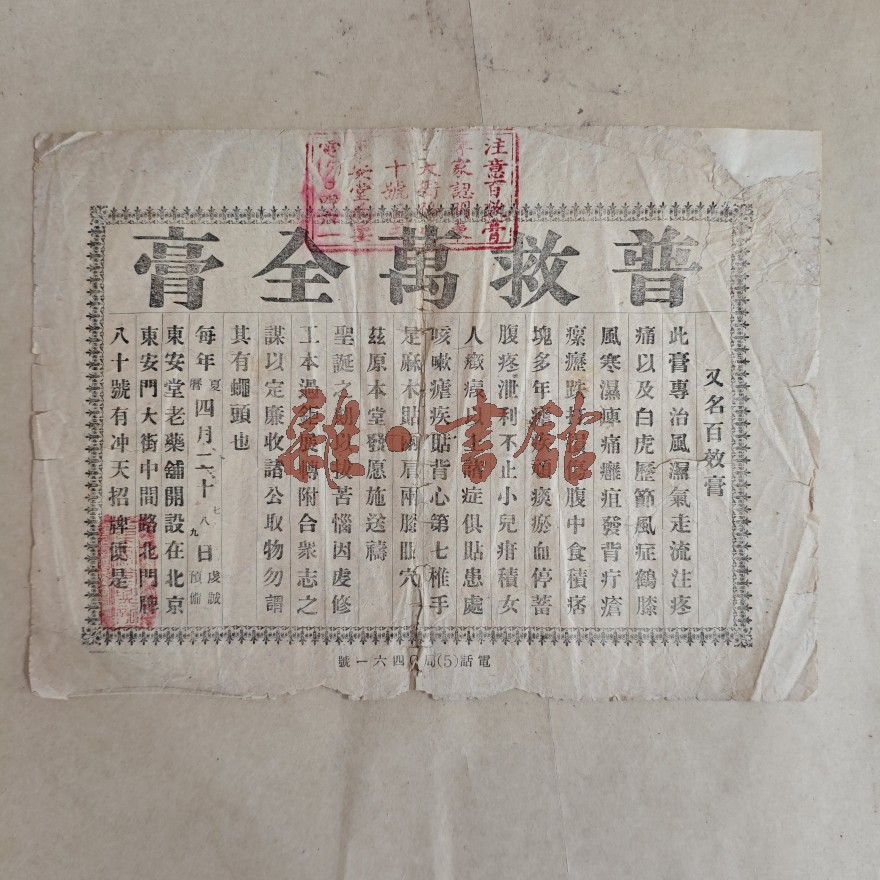 注意百效膏
家認明
大街
十號
安堂
普救萬全膏
又名百效膏
此膏專治風濕氣走流注疼
痛以及白虎歷節風症鶴膝
風寒濕痛癰疽發背疔瘡
瘰癧跌打腹中食積痞
塊多年頑痰瘀血停蓄
腹疼泄利不止小兒疳積女
人癥諸症俱貼患處
咳嗽瘧疾貼背心第七椎手
足麻木貼兩肩兩膝眼穴
茲原本堂發愿施送禱
聖誕之期以拔苦惱因虔修
工本過附合衆志之
謀以定廉收諸公取物勿謂
其有蠅頭也
每年夏曆四月二十六七八九日虔誠預備
東安堂老藥舖開設在北京
東安門大街中間路北門牌
八十號有冲天招牌便是
電話(5)局〇四六一號
雜·書館